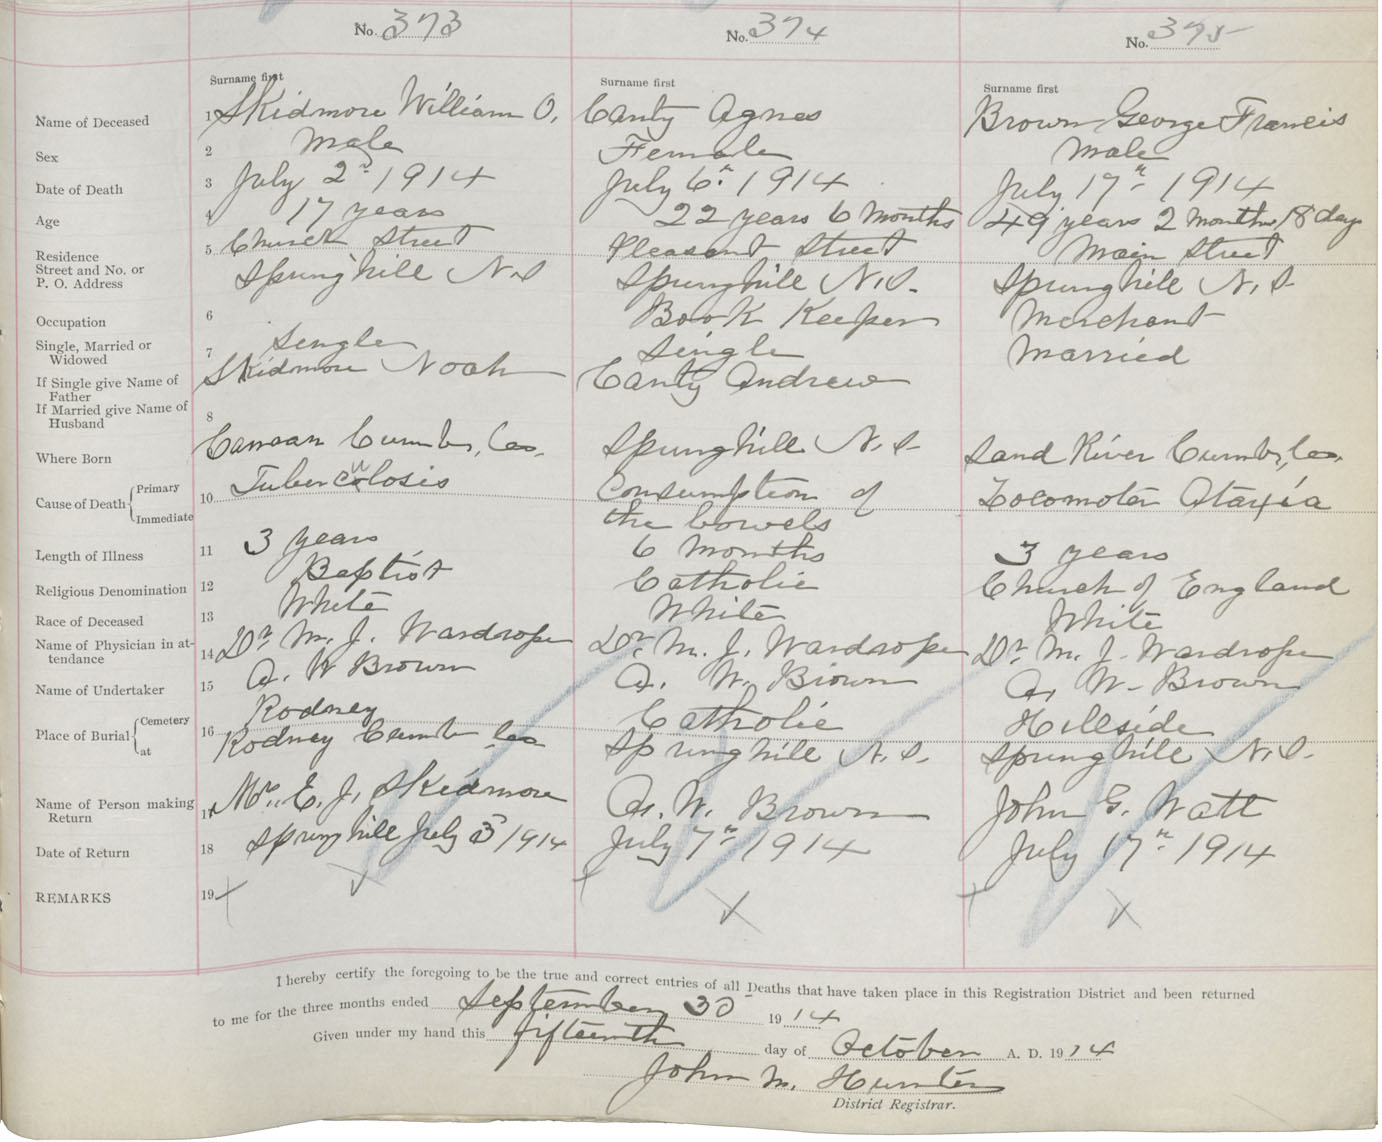 No. 373 No. 374 No. 375
Surname first Surname first Surname first
Name of Deceased 1 Skidmore William O. Canty Agnes Brown George Francis
Sex 2 Male Female Male
Date of Death 3 July 2n 1914 July 6th 1914 July 17th 1914
Age 4 17 years 22 years 6 Months 49 years 2 Months 18 days
Residence 5 Church Street Pleasant Street Main Street
Street and No. or
P. O. Address Springhill N.S Springhill N.S. Springhill N.S
Occupation 6 Book Keeper Merchant
Single, Married or
Widowed 7 Single Single Married
If Single give Name of
Father Skidmore Noah Canty Andrew
If Married give Name of
Husband 8
Where Born Canaan Cumb. Co. Springhill N.S Sand River Cumb. Co.
Cause of Death Primary 10 Tuberculosis Consumption of Locomoter Ataxia
Immediate the bowels
Length of Illness 11 3 years 6 Months 3 years
Religious Denomination 12 Baptist Catholic Church of England
Race of Deceased 13 White White White
Name of Physician in at-
tendance 14 Dr M. J. Wardrope Dr. M. J. Wardrope Dr M. J. Wardrope
Name of Undertaker 15 A. W Brown A. W. Brown A. W. Brown
Place of Burial Cemetery 16 Rodney Catholic Hillside
at Rodney Cumb Co Springhill N.S. Springhill N.S.
Name of Person making
Return 17 Mr. E. J. Skidmore A. W. Brown John G. Watt
Date of Return 18 Springhill July 3 1914 July 7th 1914 July 17th 1914
REMARKS 19
I hereby certify the foregoing to be the true and correct entries of all Deaths that have taken place in this Registration District and been returned
to me for the three months ended September 30 1914
Given under my hand this fifteenth day of October A. D. 1914
John M. Hunter
District Registrar.